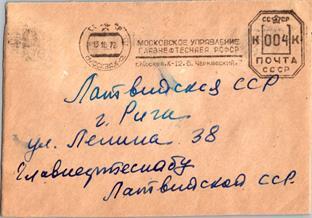 СССР
К 004 К
ПОЧТА
СССР
МОСКОВСКОЕ УПРАВЛЕНИЕ
ГЛАВНЕФТЕСНАБА РСФСР
г. Москва, К-12, Б. Черкасский
Латвийская ССР
г. Рига
ул. Ленина. 38
Главнефтеснабу
Латвийской ССР.